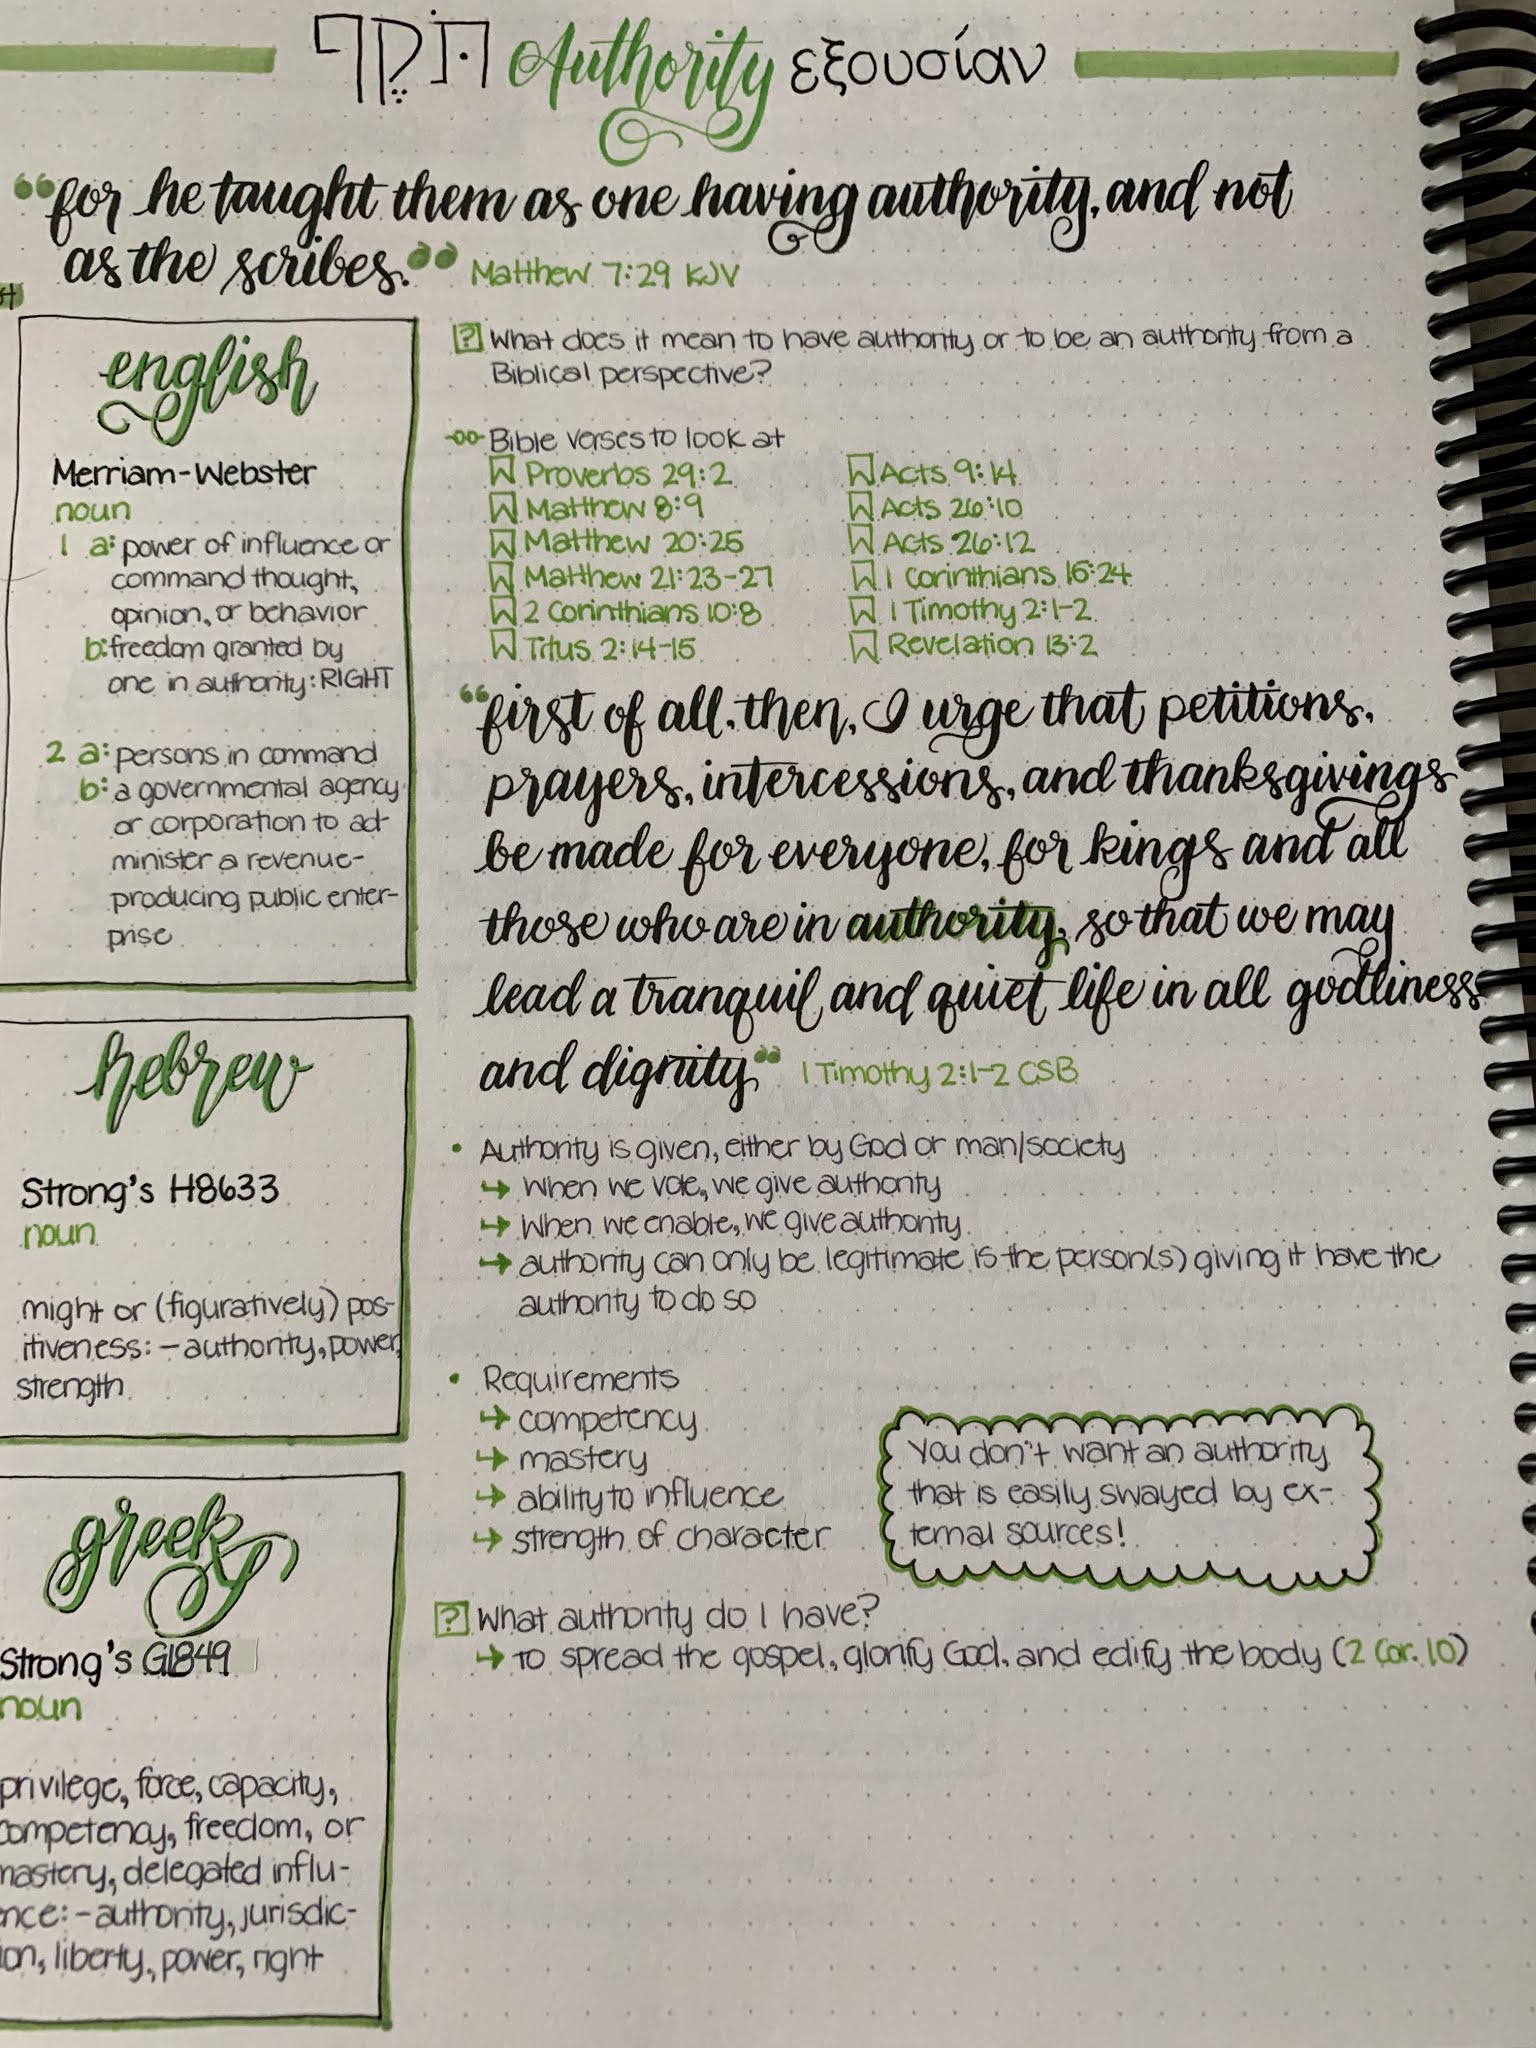 תֹּקֶף Authority εξουσίαν
“for he taught them as one having authority, and not
as the scribes.” Matthew 7:29 KJV
english
Merriam-Webster
noun
1 a: power of influence or
command thought,
opinion, or behavior
b: freedom granted by
one in authority: RIGHT
2 a: persons in command
b: a governmental agency
or corporation to ad-
minister a revenue-
producing public enter-
prise
hebrew
Strong's H8633
noun
might or (figuratively) pos-
itiveness: - authority, power,
strength
greek
Strong's G1849
noun
privilege, force, capacity,
competency, freedom, or
mastery, delegated influ-
ence: - authority, jurisdic-
ion, liberty, power, right
? What does it mean to have authority or to be an authority from a
Biblical perspective?
Bible verses to look at
Proverbs 29:2
Matthew 8:9
Matthew 20:25
Matthew 21:23-27
2 Corinthians 10:8
Titus 2:14-15
Acts 9:14
Acts 26:10
Acts 26:12
1 Corinthians 15:24
1 Timothy 2:1-2
Revelation 13:2
“first of all, then, I urge that petitions,
prayers, intercessions, and thanksgivings
be made for everyone, for kings and all
those who are in authority, so that we may
lead a tranquil and quiet life in all godliness
and dignity” 1 Timothy 2:1-2 CSB
• Authority is given, either by God or man/society
↪ When we vote, we give authority
↪ When we enable, we give authority
↪ authority can only be legitimate is the person(s) giving it have the
authority to do so
• Requirements
↪ competency
↪ mastery
↪ ability to influence
↪ strength of character
You don't want an authority
that is easily swayed by ex-
ternal sources!
? What authority do I have?
↪ to spread the gospel, glorify God, and edify the body (2 Cor. 10)